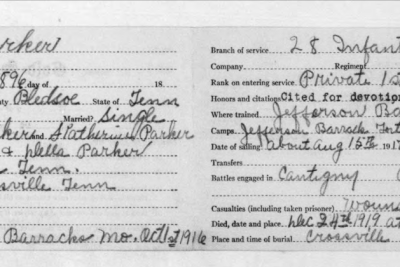 arker
896 day of 18
nty Bledsoe State of Tenn
Married? Single
rker and Katherine Parker
& Della Parker
Tenn.
ssville Tenn
Barracks Mo. Oct 1st 1916
Branch of service 28 Infant
Company Regiment
Rank on entering service Private 1s
Honors and citations Cited for devotion
Where trained Jefferson Ba
Camps Jefferson Barrack Fort
Date of sailing about Aug 15th 1917
Transfers
Battles engaged in Cantigny
Casualties (including taken prisoner) Woun
Died, date and place Dec 24th 1919 at
Place and time of burial Crossville